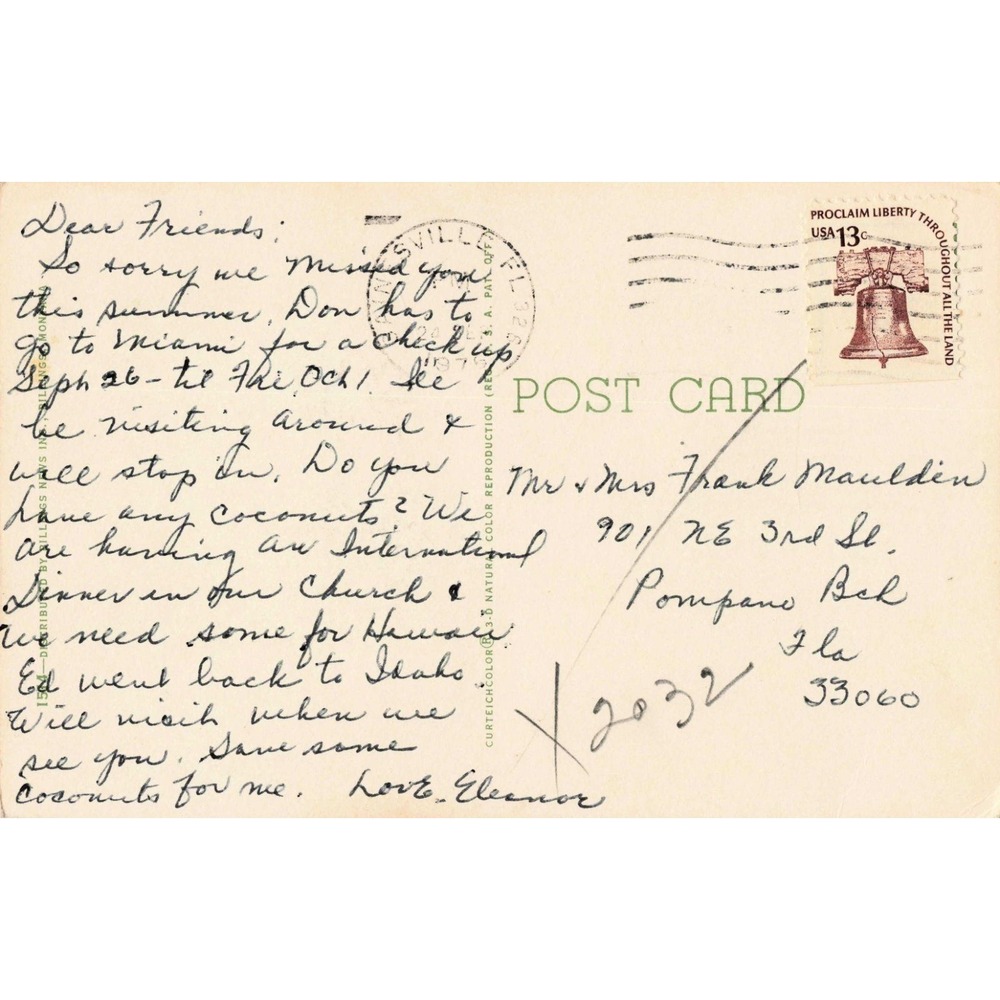 Dear Friends;
So sorry we missed you
this summer. Don has to
go to Miami for a check up
Sept 26 - til Fri Oct 1. He
be visiting around &
will stop in. Do you
have any coconuts? We
are having an International
Dinner in our Church &
we need some for Hawaii
Ed went back to Idaho.
Will visit when we
see you. Save some
coconuts for me. Love. Eleanor
GAINESVILLE, FL 326
197
PROCLAIM LIBERTY THROUGHOUT ALL THE LAND
USA 13c
POST CARD
Mr & Mrs Frank Maulden
901 NE 3rd St.
Pompano Bch
Fla
33060
X 2032
DISTRIBUTED BY BILLINGS NEWS INC., BILLINGS, MONTANA
CURTEICHCOLOR® 3-D NATURAL COLOR REPRODUCTION (REG. U.S.A. PAT. OFF.)